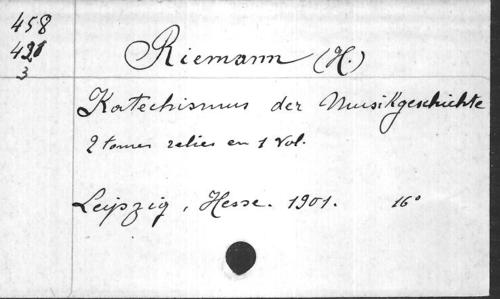 458
421
3
Riemann (H.)
Katechismus der Musikgeschichte
2 tomes reliés en 1 vol.
Leipzig, Hesse. 1901. 16°